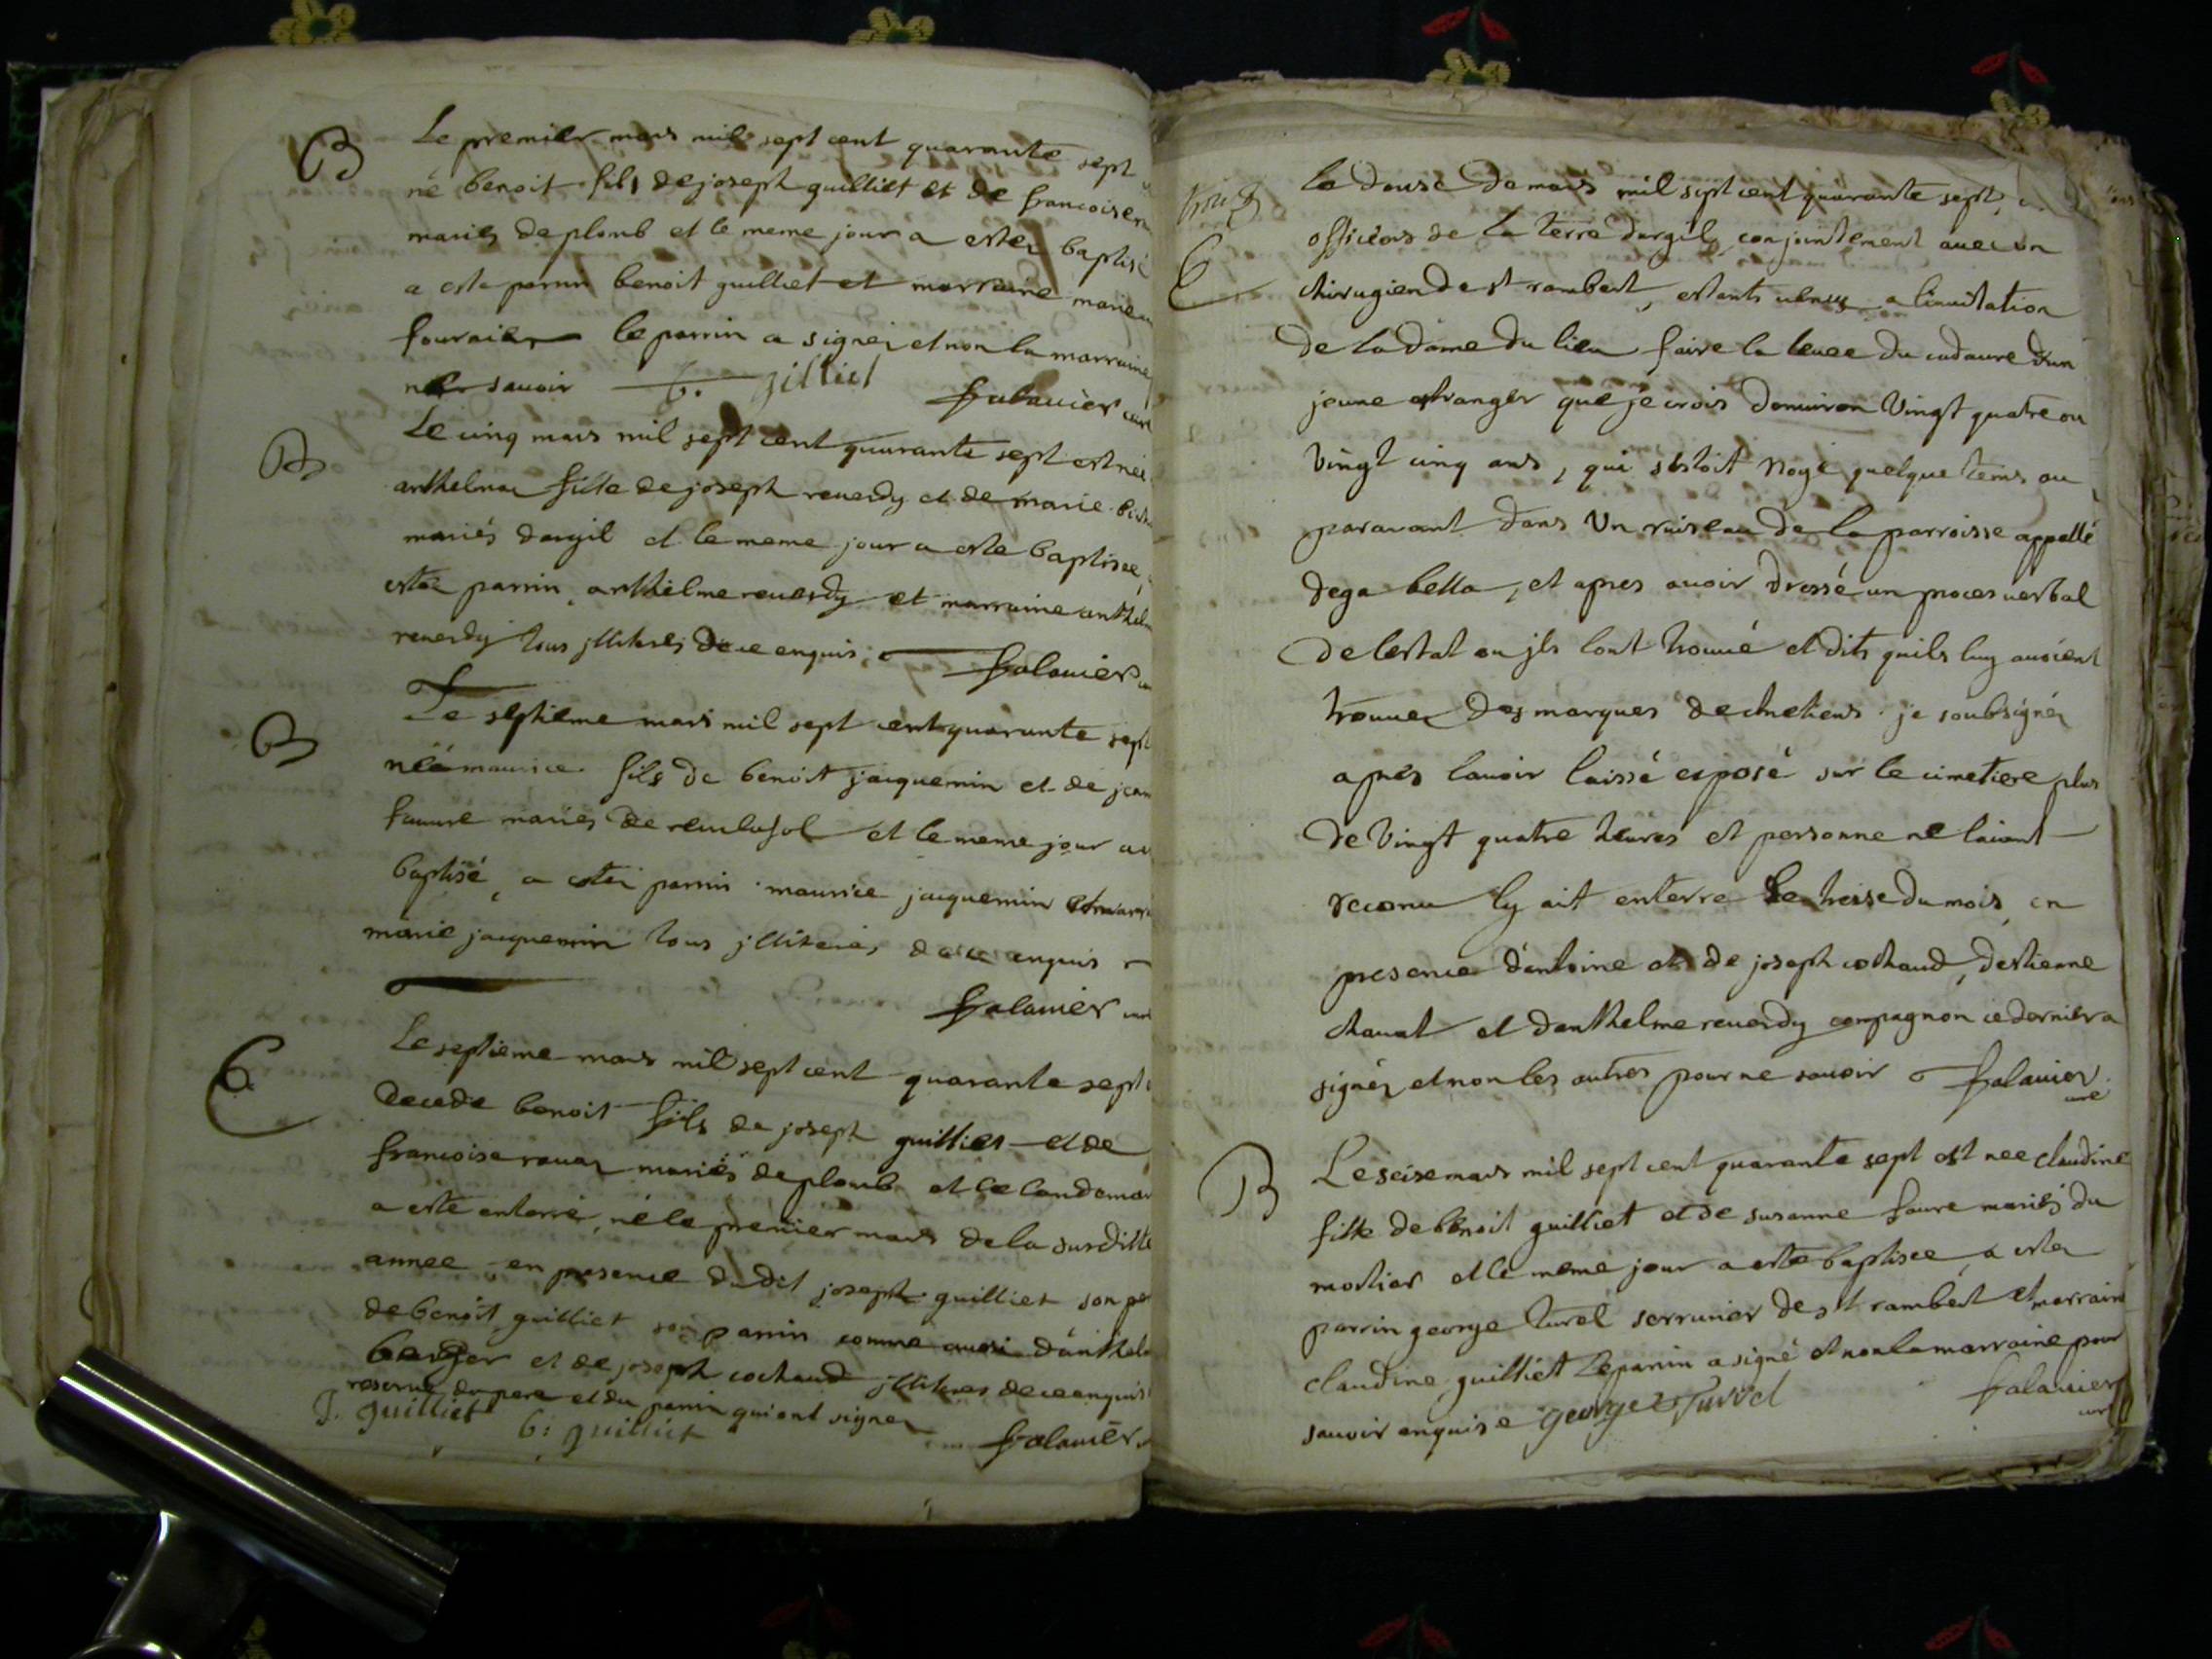 B
Le premier mars mil sept cent quarante sept
né benoit fils de joseph guilliet et de francoise
mariés de plomb et le meme jour a estez baptisé
a este parrin benoit guilliet et marraine marie
fournier le parrin a signez et non la marraine
savoir b. gilliet
falavier curé
B
Le cinq mars mil sept cent quarante sept est née
anthelmaz fille de joseph reverdy et de marie
mariés dargil et le meme jour a este baptisee,
estez parrin anthelme reverdy et marraine anthel
reverdy tous jllitérés de ce enquis
falavier
B
Le septieme mars mil sept cent quarante sept
néé maurice fils de benoit jacquemin et de jean
faure mariés de et le meme jour a
baptisé, a estez parrin maurice jacquemin et marr
marie jacquemin tous jllitérés de ce enquis
falavier
E
Le septieme mars mil sept cent quarante sept
decede benoit fils de joseph guilliet et de
francoise mariés de plomb et le landemai
a este enterré, né le premier mars de la susditte
annee en presence dudit joseph guilliet son pe
de benoit guilliet son parrin comme aussi danthel
berger et de joseph cochaud jllitérés de ce enquis
reserve du pere et du parrin qui ont signez
J. guilliet b: guilliet
falavier
E
Le douse de mars mil sept cent quarante sept,
officiers de la terre dargil, conjointement avec un
chirugien de st rambert, estants venus a linvitation
de la dame du lieu faire la levee du cadavre dun
jeune estranger que je crois denviron vingt quatre ou
vingt cinq ans, qui sestoit noyé quelque tems au
paravant dans un ruiseau de la parroisse appellé
dega bella, et apres avoir dressé un proces verbal
de lestat ou jls lont trouvé et dits quils luy avoient
trouvez des marques de chretiens je soubsignez
apres lavoir laissé exposé sur le cimetiere plus
de vingt quatre heures et personne ne laiant
reconu ly ait enterre le treise du mois en
presence dantoine et de joseph cochaud, destienne
chavat et danthelme reverdy compagnon ce dernier a
signéz et non les autres pour ne savoir falavier
curé
B
Le seise mars mil sept cent quarante sept est nee claudine
fille de benoit guilliet et de susanne faure mariés du
mortier et le meme jour a este baptisee, a estez
parrin george turel serrurier de st rambert et marraine
claudine guilliet le parrin a signé et non la marraine pour
savoir enquise george Turrel
falavier
curé